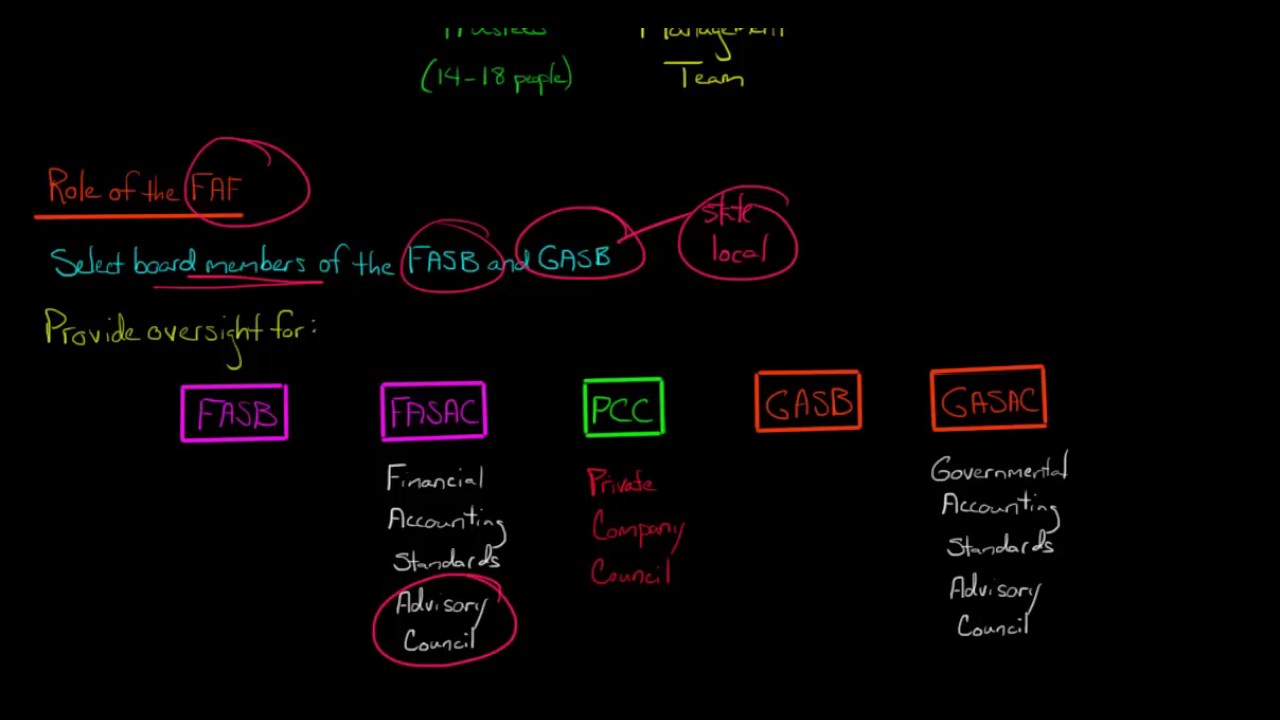 Trustees Management
(14-18 people) Team
Role of the FAF
state
Select board members of the FASB and GASB local
Provide oversight for:
FASB FASAC PCC GASB GASAC
Financial Private Governmental
Accounting Company Accounting
Standards Council Standards
Advisory Advisory
Council Council